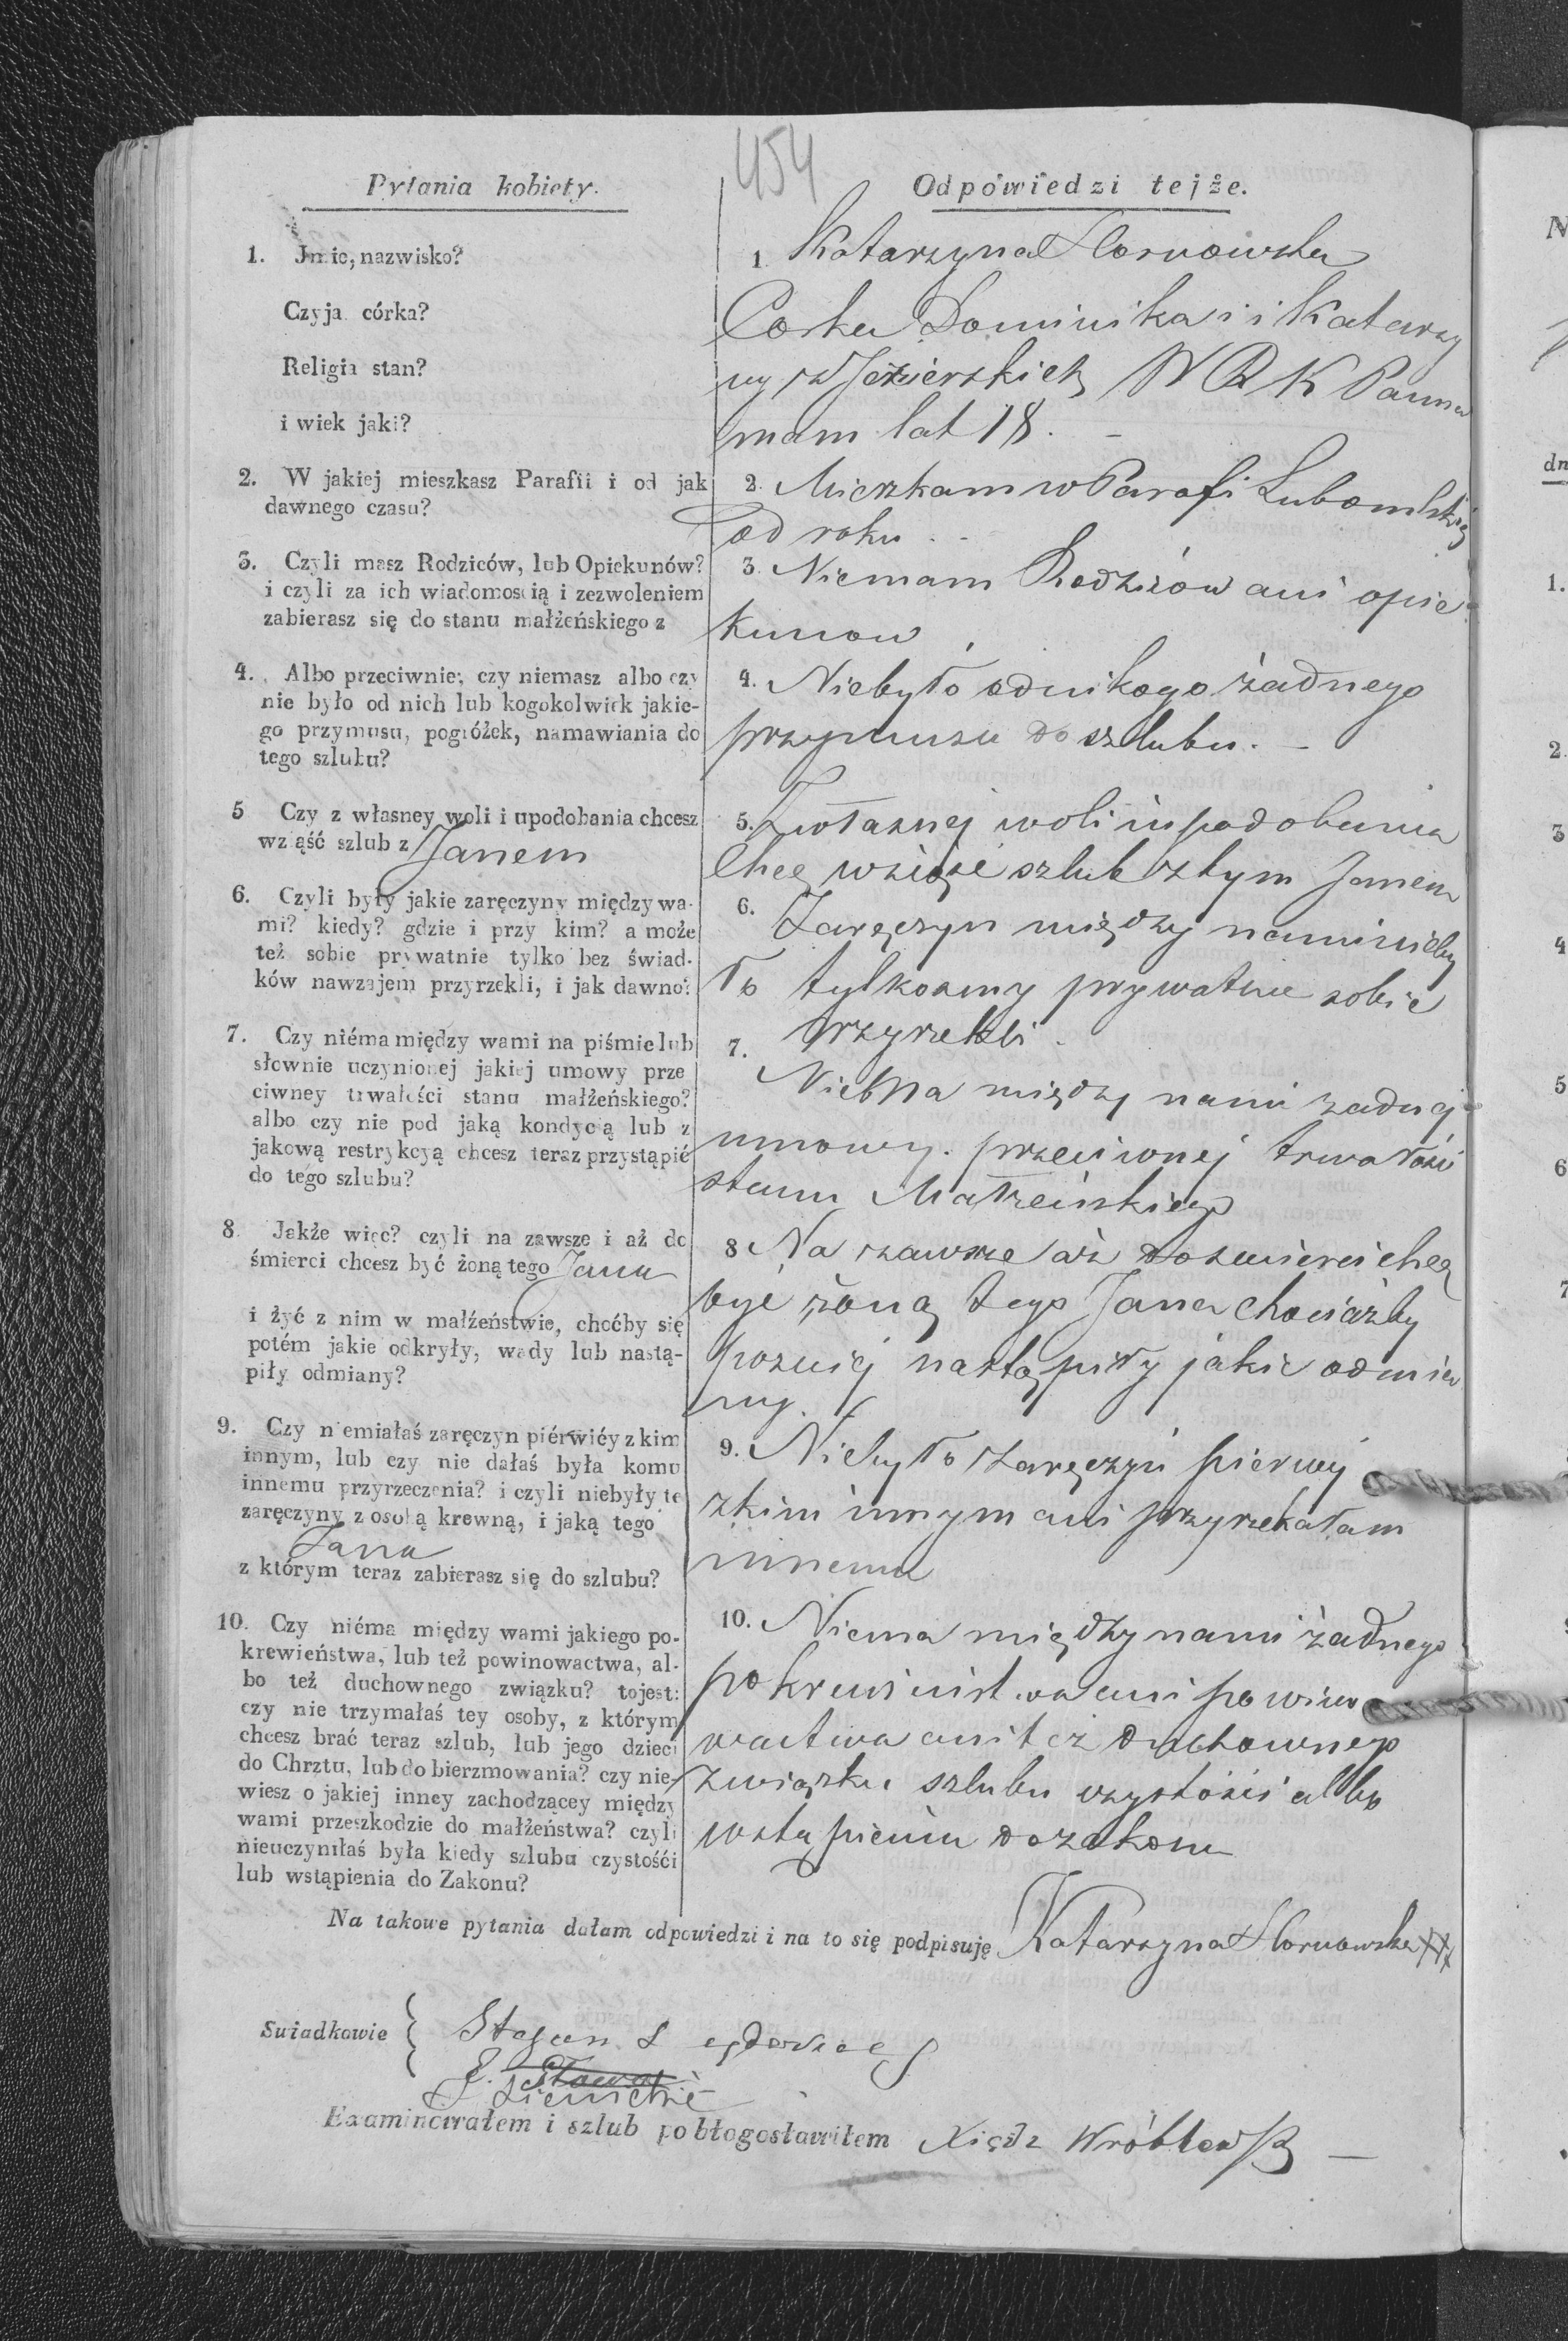 454
Pytania kobiety.
1. Jmie, nazwisko?
Czyja córka?
Religia stan?
i wiek jaki?
2. W jakiej mieszkasz Parafii i od jak
dawnego czasu?
3. Czyli masz Rodziców, lub Opiekunów?
i czyli za ich wiadomoscią i zezwoleniem
zabierasz się do stanu małżeńskiego z
4. Albo przeciwnie, czy niemasz albo czy
nie było od nich lub kogokolwiek jakie-
go przymusu, pogróżek, namawiania do
tego szlubu?
5 Czy z własney woli i upodobania chcesz
wziąść szlub z Janem
6. Czyli były jakie zaręczyny między wa-
mi? kiedy? gdzie i przy kim? a może
też sobie prywatnie tylko bez świad-
ków nawzajem przyrzekli, i jak dawno?
7. Czy niéma między wami na piśmie lub
słownie uczynionej jakiej umowy prze
ciwney trwałości stanu małżeńskiego?
albo czy nie pod jaką kondycą lub z
jakową restrykcyą chcesz teraz przystąpić
do tego szlubu?
8. Jakże więc? czyli na zawsze i aż do
śmierci chcesz być żoną tego Jana
i żyć z nim w małżeństwie, choćby się
potém jakie odkryły, wady lub nastą-
piły odmiany?
9. Czy niemiałaś zaręczyn piérwiéy z kim
innym, lub czy nie dałaś była komu
innemu przyrzeczenia? i czyli niebyły te
zaręczyny z osobą krewną, i jaką tego
Jana
z którym teraz zabierasz się do szlubu?
10. Czy niéma między wami jakiego po-
krewieństwa, lub też powinowactwa, al-
bo też duchownego związku? tojest:
czy nie trzymałaś tey osoby, z którym
chcesz brać teraz szlub, lub jego dzieci
do Chrztu, lub do bierzmowania? czy nie-
wiesz o jakiej inney zachodzącey między
wami przeszkodzie do małżeństwa? czyli
nieuczyniłaś była kiedy szlubu czystości
lub wstąpienia do Zakonu?
Odpówiedzi tejże.
1. Katarzyna
Corka Dominika i i Katarzy
ny z Jezierskich W R K Panna
mam lat 18. -
2. Mieszkam w Parafi Lubomlskiej
od roku . -
3. Niemam Rodziców ani opie
kunow
4. Niebyło od nikogo żadnego
przymusu do szlubu. -
5. Zwłasnej woli i upodobania
Chcę wziąść szlub z tym Janem
6. Zaręczyn między nami nieby
ło tylkosmy prywatnie sobie
przyrzekli.
7. Niema między nami zadnej
umowy. przeciwnej trwałości
stanu Małżeńskiego
8 Na zawsze aż do smierci chcę
być żoną tego Jana chociażby
pozniej nastąpiły jakie odmia
ny.
9. Niebyło zaręczyn pierwej
zkim innym ani przyrzekałam
innemu
10. Niema między nami żadnego
pokrewinstwa ani powino
wactwa ani też duchownego
związku szlubu czystości albo
wstąpienia do zakonu
Na takowe pytania dałam odpowiedzi i na to się podpisuję Katarzyna XXX
Swiadkowie { Stefan
Examinowałem i szlub pobłogosławiłem Xiądz Wróblewski —
N
dn
1.
2.
3
4
5
6
7